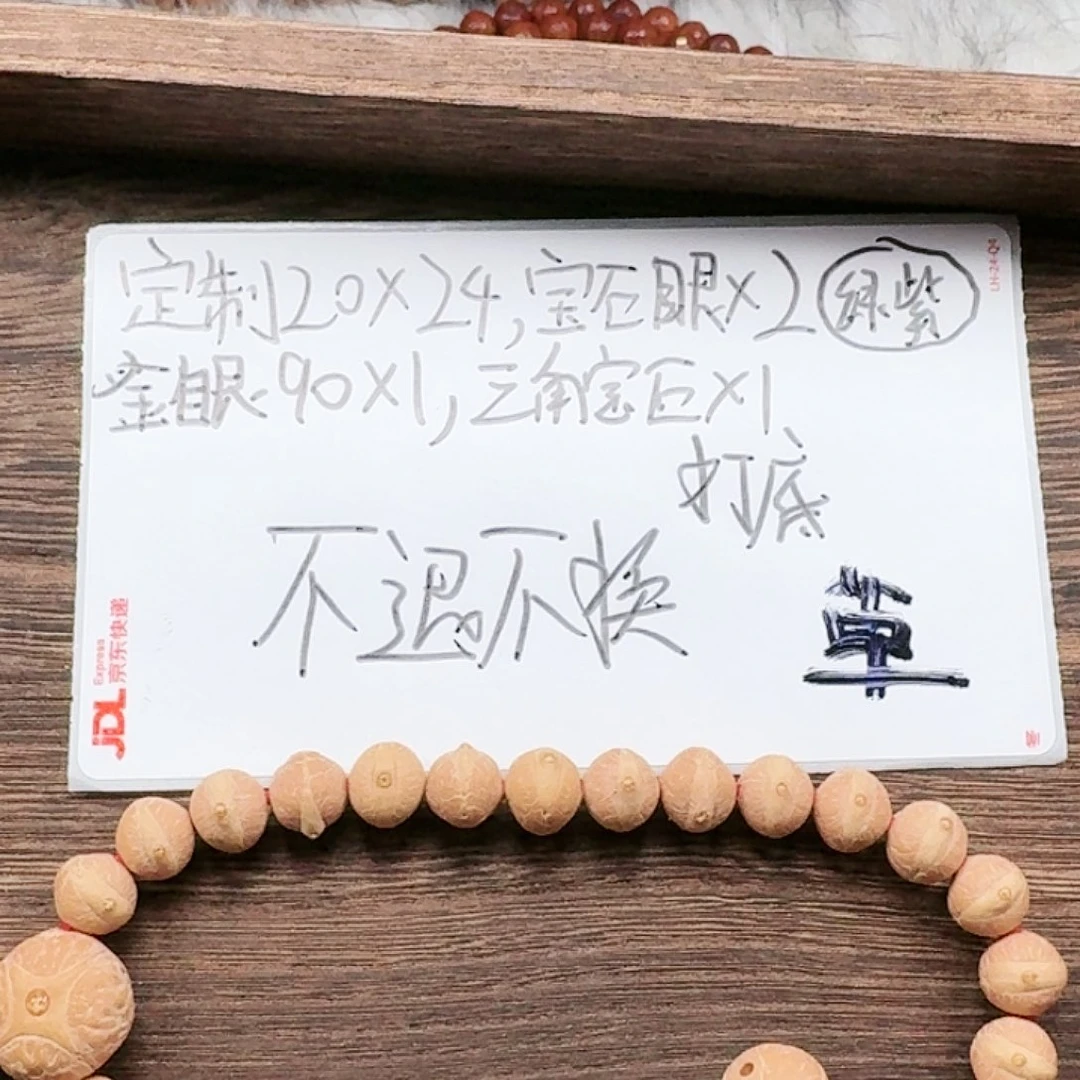 定制20×24,宝石眼×2 绿紫
金眼90×1,三角宝石×1
打底
不退不换
JDL 京东快递
Express
LH-24-Q4